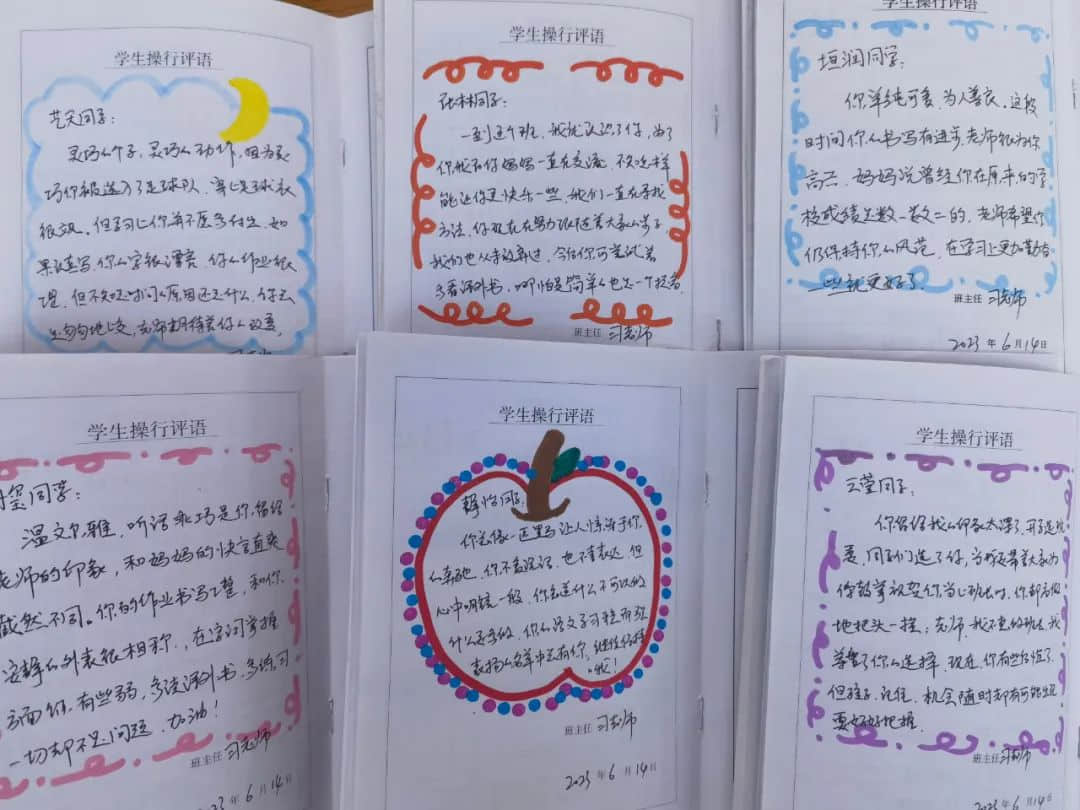 学生操行评语
艺天同学：
灵巧的个子，灵巧的动作，因为灵
巧你被选入了足球队，穿上足球衣
很飒。但学习上你并不愿多付出，如
果认真写，你的字很漂亮，你的作业很
但不交作业的原因还是什么，你去
老师期待着你的改变。
学生操行评语
张林同学：
一到这个班，我就认识了你，为了
你我和你妈妈一直在交流，不知怎样
能让你更快乐一些，我们一直在寻找
方法，你现在在努力跟随着大家的步子，
我们也从未放弃过，今后你可尝试着
多看课外书，哪怕是简单的也是一个提高。
班主任 习老师
学生操行评语
垣润同学：
你单纯可爱，为人善良，这段
时间你的书写有进步，老师很为你
高兴，妈妈说曾经你在原来的学
校成绩是数一数二的，老师希望你
仍保持你的风范，在学习上更加勤奋
一些就更好了。
班主任 习老师
2023年6月14日
学生操行评语
同学：
温文尔雅，听话乖巧是你留给
老师的印象，和妈妈的快言直爽
截然不同。你的作业书写工整，和你
安静的外表很相称，在字词掌握
方面你有些弱，多读课外书，多练习
一切却不是问题，加油！
班主任 习老师
年6月14日
学生操行评语
同学：
你总像一匹黑马让人惊诧于你
的其他，你不善言语，也不善表达，但
心中明镜一般，你知道什么不可以做
什么要去做，你的语文学习稳而强
表扬的名单中总有你，继续保持
哦！
班主任 习老师
2023年6月14日
学生操行评语
云莹同学：
你留给我的印象太深了，开学选班
委，同学们选了你，当我带着大家为
你鼓掌祝贺你当上班长时，你却高傲
地把头一摇：老师，我不想做班长，我
尊重了你的选择，现在，你有些后悔了，
但孩子，记住，机会随时都有可能出现
要好好把握。
班主任 习老师
2023年6月14日